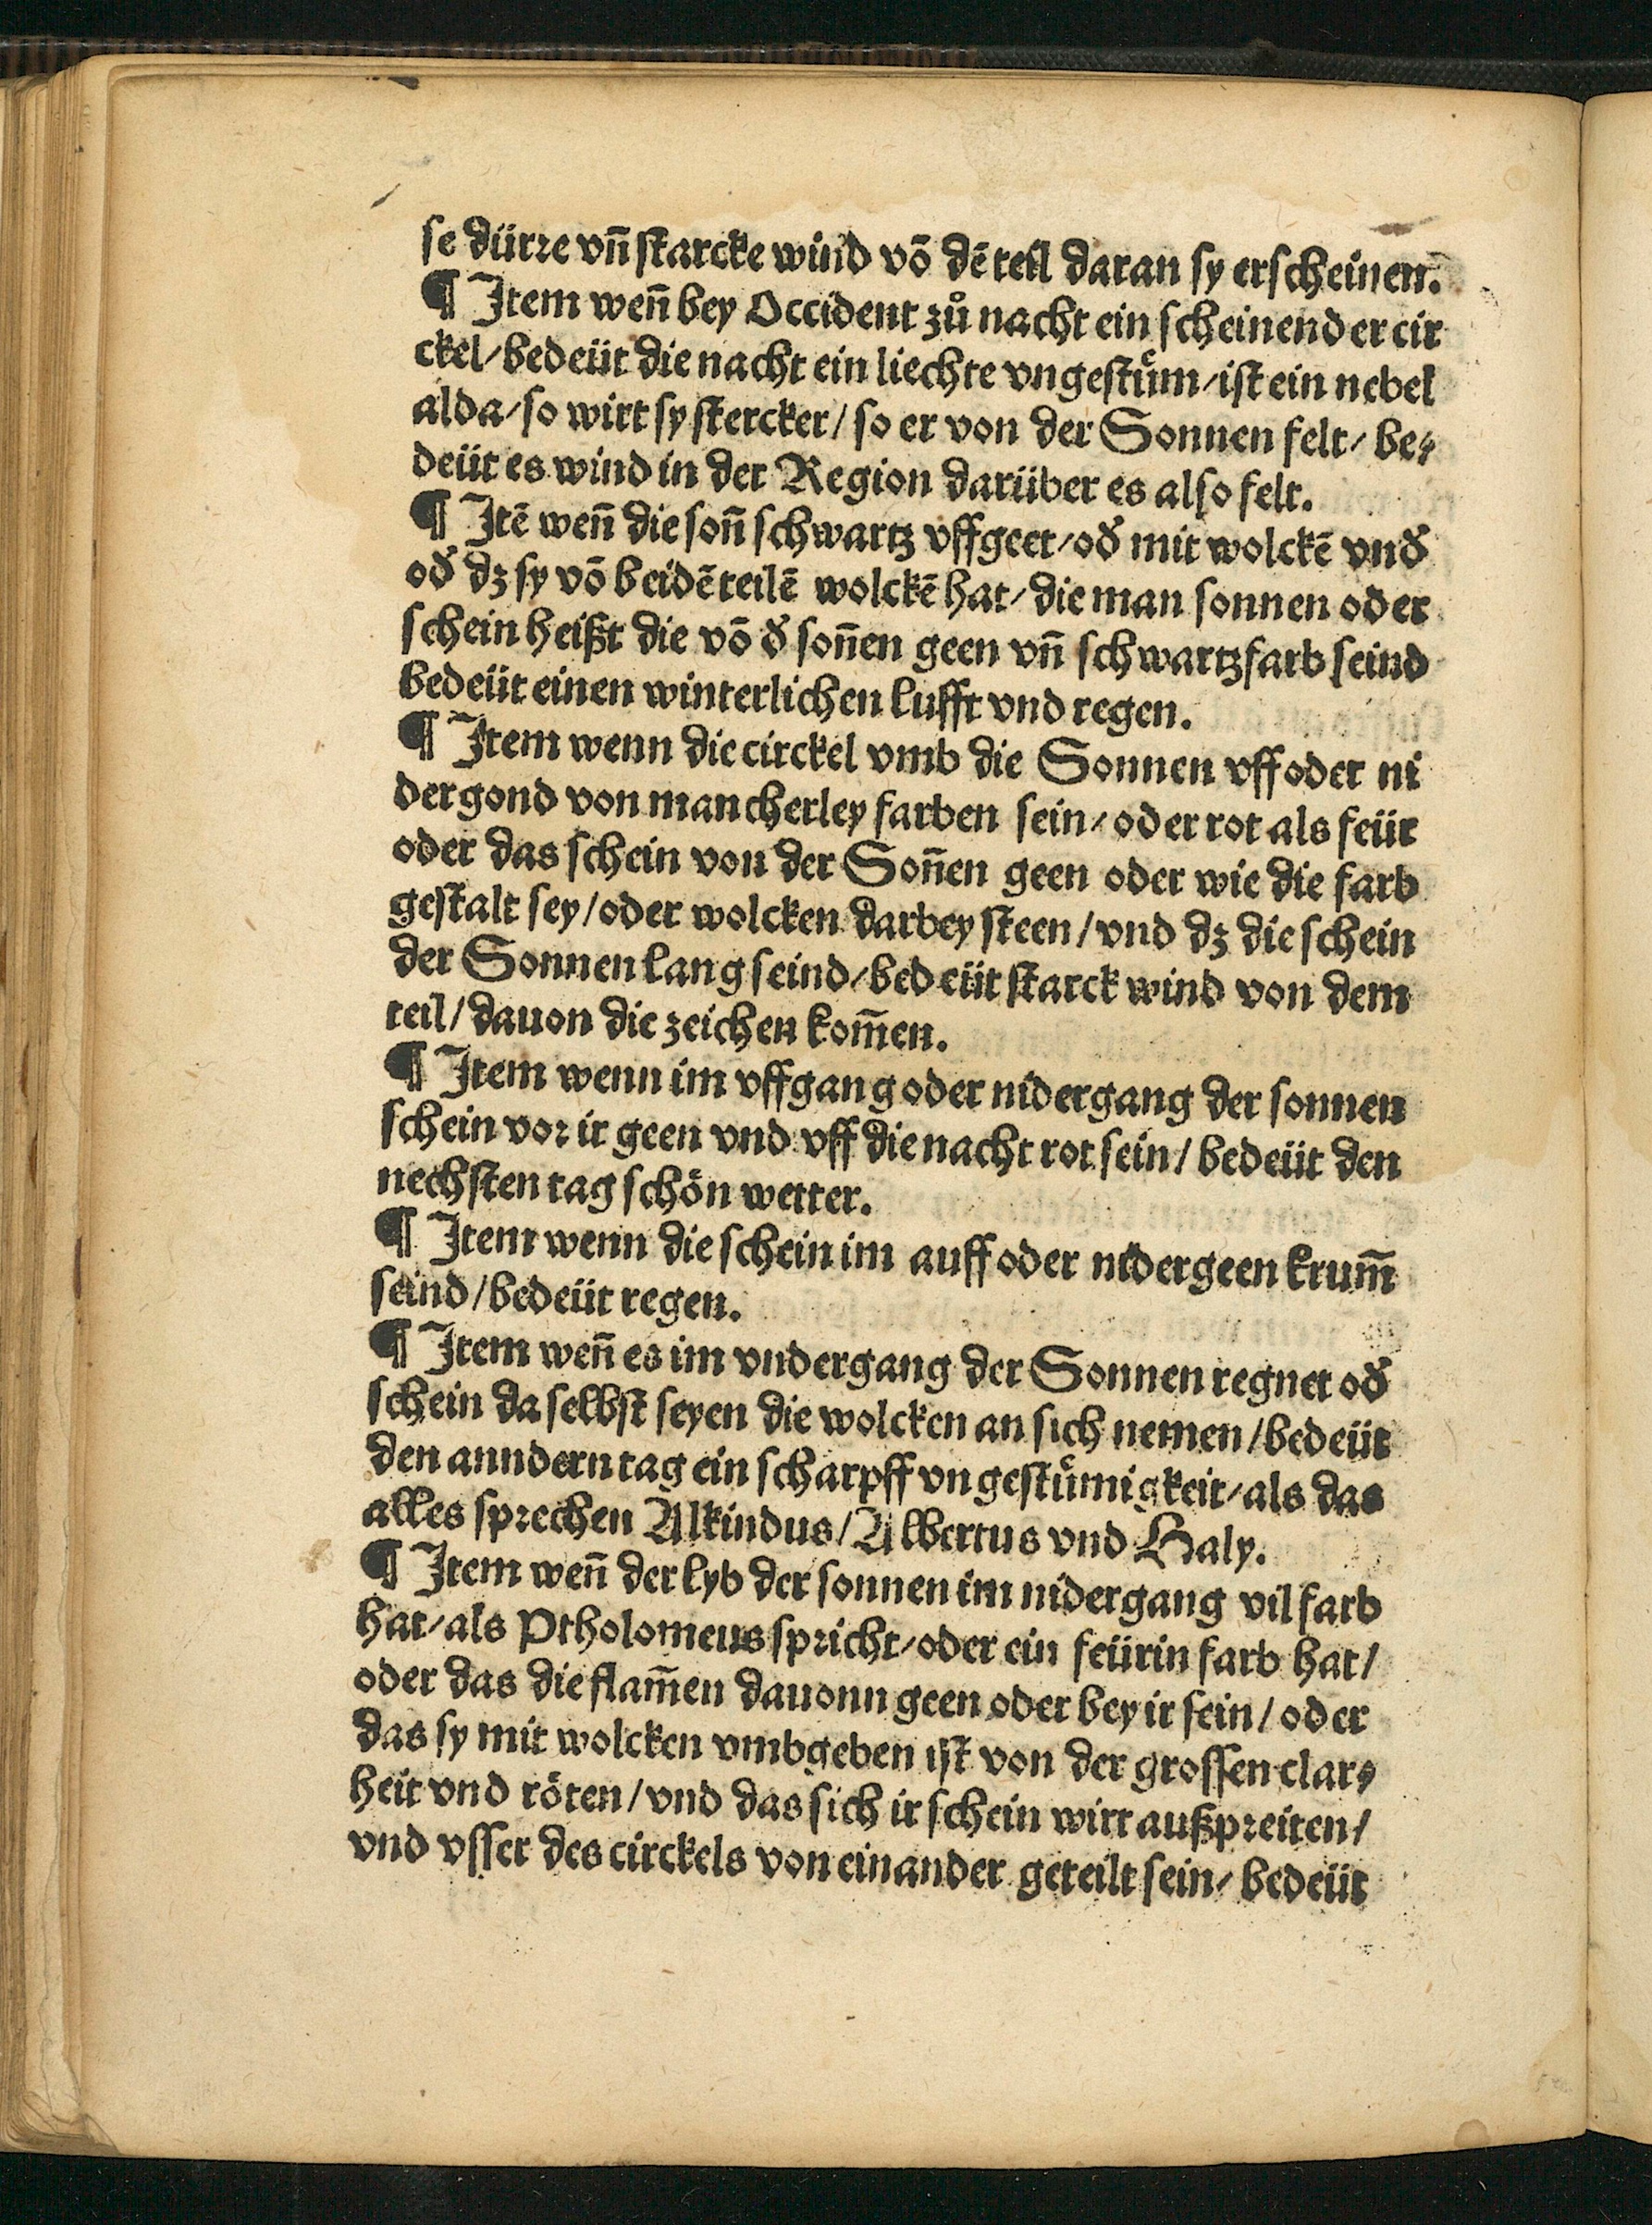 se dürre vn̄ starcke wind vō dē teil daran sy erscheinen.
¶ Item wen̄ bey Occident zů nacht ein scheinender cir
ckel/bedeüt die nacht ein liechte vngestuͤm/ist ein nebel
alda/so wirt sy stercker/so er von der Sonnen felt/be⸗
deüt es wind in der Region darüber es also felt.
¶ Itē wen̄ die son̄ schwartz vffgeet/oď mit wolckē vnď
oď dz sy vō beidē teilē wolckē hat/die man sonnen oder
schein heißt die vō ď son̄en geen vn̄ schwartzfarb seind
bedeüt einen winterlichen lufft vnd regen.
¶ Item wenn die circkel vmb die Sonnen vff oder ni
dergond von mancherley farben sein/oder rot als feür
oder das schein von der Son̄en geen oder wie die farb
gestalt sey/oder wolcken darbey steen/vnd dz die schein
der Sonnen lang seind/bedeüt starck wind von dem
teil/dauon die zeichen kom̄en.
¶ Item wenn im vffgang oder nidergang der sonnen
schein vor ir geen vnd vff die nacht rot sein/bedeüt den
nechsten tag schön wetter.
¶ Item wenn die schein im auff oder nidergeen krum̄
seind/bedeüt regen.
¶ Item wen̄ es im vndergang der Sonnen regnet oď
schein da selbst seyen die wolcken an sich nemen/bedeüt
den anndern tag ein scharpff vngestuͤmigkeit/als das
alles sprechen Alkindus/Albertus vnd Haly.
¶ Item wen̄ der lyb der sonnen im nidergang vil farb
hat/als Ptholomeus spricht/oder ein feürin farb hat/
oder das die flam̄en dauonn geen oder bey ir sein/oder
das sy mit wolcken vmbgeben ist von der grossen clar⸗
heit vnd röten/vnd das sich ir schein wirt außpreiten/
vnd vsser des circkels von einander geteilt sein/bedeüt